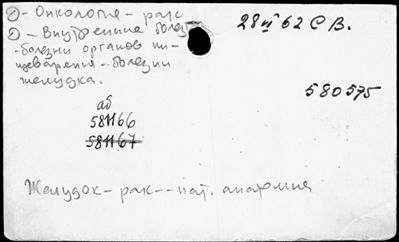 ② - Онкология - рак
② - Внутренние болез
- болезни органов пи-
щеварения - болезни
желудка.
28 III 62 С В.
580575
аб
581166
581167
Желудок - рак -- пат. анатомия